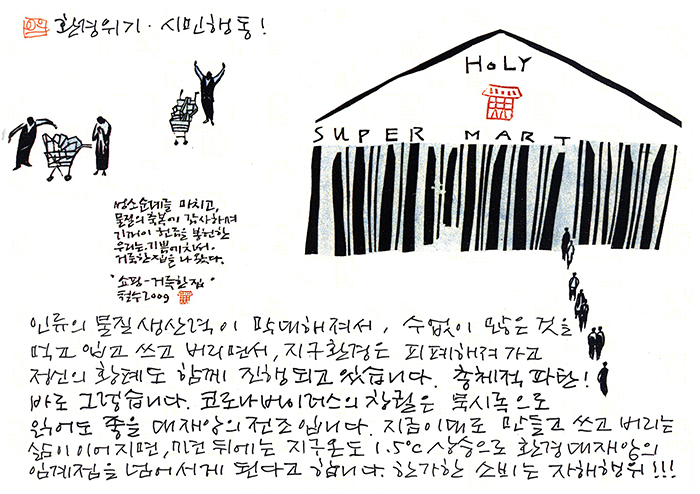 환경위기·시민행동!
HOLY
SUPER MART
성소순례를 마치고,
물질의 축복에 감사하며
기꺼이 헌금을 봉헌한
우리는, 기쁨에 차서-
거룩한 집을 나왔다.
"쇼핑-거룩한 집"
철수 2009
인류의 물질생산력이 막대해져서, 수없이 많은 것을
먹고 입고 쓰고 버리면서, 지구환경은 피폐해져가고
정신의 황폐도 함께 진행되고 있습니다. 총체적 파탄!
바로 그렇습니다. 코로나바이러스의 창궐은 묵시록으로
읽어도 좋을 대재앙의 전조입니다. 지금 이대로 만들고 쓰고 버리는
삶이 이어지면, 뒤에는 지구온도 1.5°C 상승으로 환경대재앙의
임계점을 넘어서게 된다고 합니다. 한가한 소비는 자해행위!!!